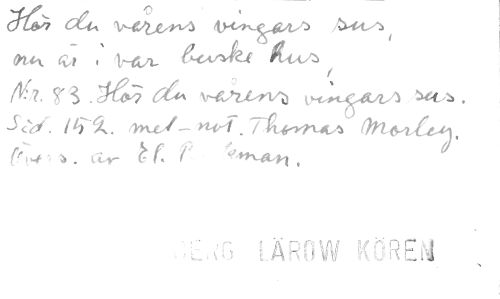 Hör du vårens vingars sus,
nu är i var buske hus,
Nr. 83. Hör du vårens vingars sus.
Sid. 152. mel-not. Thomas Morley.
Övers. av El.
LÄROW KÖREN